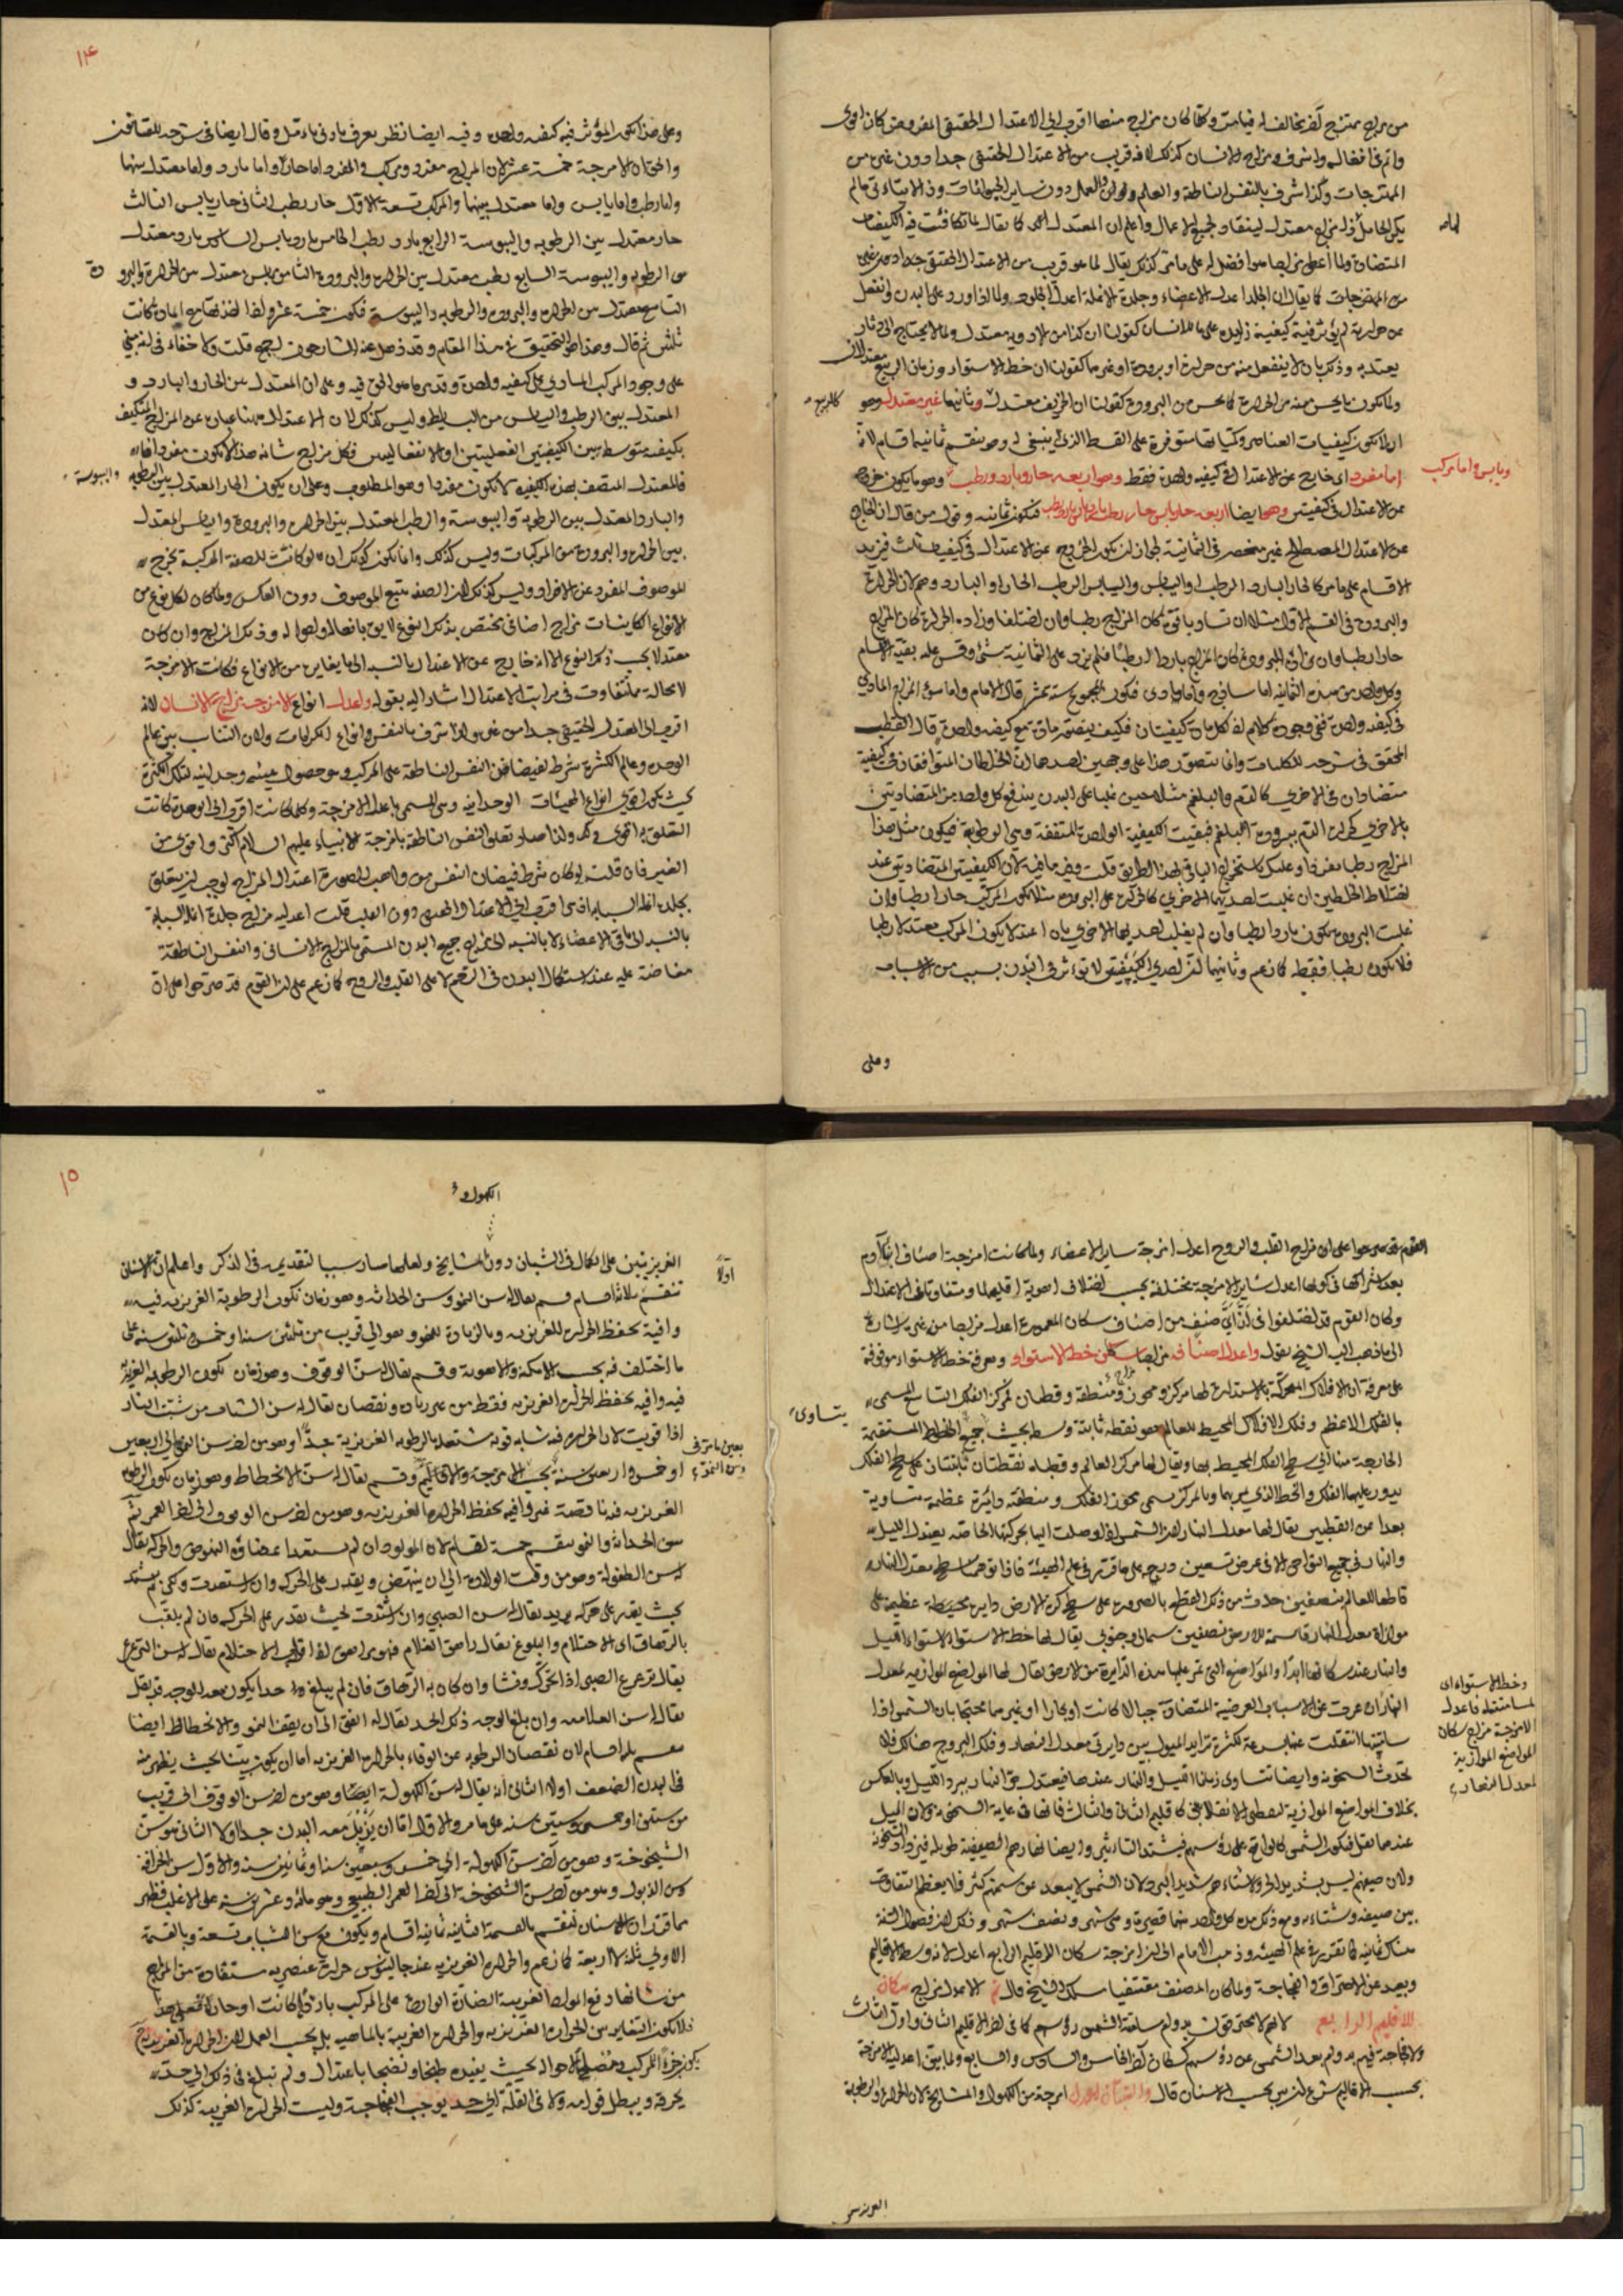 من مزاج ممتزج آخر مخالف له فيما مر وكلما كان مزاج منها اقرب الى الاعتدال الحقيقى المفروض كان اقوى
واتم فى افعاله واشرف ومزاج الانسان كذلك لانه قريب من الاعتدال الحقيقى جدا دون غيره من
الممتزجات ولذا شرف بالنفس الناطقة والعلم والعمل دون ساير الحيوانات
المتضادة ولما اعطى مزاجها هو افضل له على ما مر كذلك يقال لما هو قريب من الاعتدال الحقيقى جدا دون غيره
من الممتزجات كما يقال ان الجلد اعدل الاعضاء وجلدة الانملة اعدل الجلود ولما اذا ورد على البدن وانفعل
عن حرارته لم يؤثر فيه كيفية زايدة على ما للانسان كقولنا ان كذا من الادوية معتدل ولما لا يحتاج الى دثار
يعتد به وذلك بان لا ينفعل منه من حرارة او برودة او غيرهما كقولنا ان خط الاستواء وزمان الربيع معتدلان
ولما يكون ما يحس منه من الحرارة كما يحس من البرودة كقولنا ان الخريف معتدل وثانيهما غير معتدل وهو
ان لا يكون كيفيات العناصر وكمياتها متوفرة على القسط الذى ينبغى له وهو ينقسم ثمانية اقسام لانه
اما مفرد اى خارج عن الاعتدال فى كيفية واحدة فقط وهو اربعة حار وبارد ورطب وهو ما يكون خروجه
ويابس واما مركب
عن الاعتدال فى كيفيتين وهو ايضا اربعة حار يابس حار رطب بارد يابس بارد رطب فتكون ثمانية وقول من قال ان الخارج
عن الاعتدال المصطلح غير منحصر فى الثمانية لجواز ان يكون الخروج عن الاعتدال فى كيفيات ثلث فيزيد
الاقسام على ما مر كالحار البارد الرطب او اليابس واليابس الرطب الحار او البارد وهم لان الحرارة
والبرودة فى القسم الاول مثلا ان تساويا قوة كان المزاج رطبا وان اختلفا وزادت الحرارة كان المزاج
حارا رطبا وان زادت البرودة كان المزاج باردا رطبا فلم يزد على الثمانية شئ وقس عليه بقية الاقسام
وكل واحد من هذه الثمانية اما ساذج واما مادى فتكون المجموع ستة عشر قال الامام واما سوء المزاج المادى
فى كيفية واحدة ففى وجوده كلام لان لكل مادة كيفيتان فكيف يتصور مادة مع كيفية واحدة قال القطب
المحقق فى شرحه للكليات وانما يتصور هذا على وجهين احدهما ان الخلطان المتوافقان فى كيفية
متضادان فى الاخرى كالدم والبلغم مثلا حين غلبا على البدن يندفع كل واحد من المتضادتين
بالاخرى كحرارة الدم ببرودة البلغم فبقيت الكيفية الواحدة المتفقة وهى الرطوبة فيكون مثل هذا
المزاج رطبا مفردا وعليك باستخراج الباقى بهذا الطريق قلت وفيه ما فيه لان الكيفيتين المتضادتين عند
اختلاط الخلطين ان غلبت احديهما الاخرى كالحرارة على البرودة مثلا يكون المركب حارا رطبا وان
غلبت البرودة يكون باردا رطبا وان لم يغلب احديهما الاخرى بل اعتدلا يكون المركب معتدلا رطبا
فلا يكون رطبا فقط كما زعم وثانيهما ان احدى الكيفيتين لا تؤثر فى البدن بسبب من الاسباب
وعلى
١٤
وعلى هذا يكون المؤثر فيه كيفية واحدة وفيه ايضا نظر يعرف بادنى تأمل وقال ايضا فى شرحه للقانون
والحق ان الامزجة خمسة عشر لان المزاج مفرد ومركب والمفرد اما حار او اما بارد واما معتدل بينهما
واما رطب واما يابس واما معتدل بينهما والمركب تسعة الاول حار رطب الثانى حار يابس الثالث
حار معتدل بين الرطوبة واليبوسة الرابع بارد رطب الخامس بارد يابس السادس بارد ومعتدل
من الرطوبة واليبوسة السابع رطب معتدل بين الحرارة والبرودة الثامن يابس معتدل من الحرارة والبرو
دة
التاسع معتدل من الحرارة والبرودة والرطوبة واليبوسة فيكون خمسة عشر
ثلثين ثم قال وهذا هو التحقيق فى هذا المقام وقد ذهل عنه الشارحون اجمع قلت ولا خفاء فى انه مبنى
على وجود المركب المادى على كيفية واحدة وقد مر ما هو الحق فيه وعلى ان المعتدل بين الحار والبارد و
المعتدل بين الرطب واليابس من البسايط وليس كذلك لان الاعتدال ههنا عبارة عن المزاج المتكيف
بكيفية متوسطة بين الكيفيتين الفعليتين او الانفعاليتين فكل مزاج شانه هذا لا يكون مفردا
فالمعتدل المتصف بهذه الكيفية لا يكون مفردا وهو المطلوب وعلى ان يكون الحار المعتدل بين الرطوبة واليبوسة
والبارد المعتدل بين الرطوبة واليبوسة والرطب المعتدل بين الحرارة والبرودة واليابس المعتدل
بين الحرارة والبرودة من المركبات وليس كذلك وانما يكون كذلك ان لو كانت الصفة المركبة تخرج
الموصوف المفرد عن الافراد وليس كذلك لان الصفة تتبع الموصوف دون العكس ولما كان لكل نوع من
الانواع الكاينات مزاج اضافى يختص بذلك النوع لايق بافعاله واحواله وذلك المزاج وان كان
معتدلا بحسب ذلك النوع الا انه خارج عن الاعتدال بالنسبة الى ما يغايره من الانواع فكانت الامزجة
لا محالة متفاوت فى مراتب الاعتدال اشار اليه بقوله واعدل انواع الامزجة مزاج الانسان لانه
اقرب الى المعتدل الحقيقى جدا من غيره ولذا شرف بالنفس وانواع الكرامات ولان التناسب بين عالم
الوحدة وعالم الكثرة شرط لفيضان النفس الناطقة على المركب وهو حصول هيئة وحدانية لتلك الكثرة
كى يكون اقوى انواع الهيئات الوحدانية وهى المسمى باعدل الامزجة وكلما كانت اقرب الى الوحدة كانت
التعلق به اقوى واكمل ولذا صار تعلق النفس الناطقة بامزجة الانبياء عليهم السلام اكثر واقوى من
الغير فان قلت لو كان شرط فيضان النفس من واهب الصورة اعتدال المزاج لوجب ان يتعلق
بجلدة انملة السبابة اذ هى اقرب الى الاعتدال والعدم دون القلب قلت اعدلية مزاج جلدة انملة السبابة
بالنسبة الى باقى الاعضاء لا بالنسبة الى مزاج جميع البدن المسمى بالمزاج الانسانى والنفس الناطقة
مفاضة عليه عند استكمال البدن فى الرحم لا على القلب والروح كما زعم على ان القوم قد صرحوا على ان
القوم قد صرحوا على ان مزاج القلب والروح اعدل امزجة ساير الاعضاء ولما كانت امزجة اصناف ابناء آدم
بعد اشتراكها فى كونها اعدل ساير الامزجة مختلفة بحسب اختلاف اهوية اقليمها ومتفاوتة فى الاعتدال
وكان القوم قد اختلفوا فى ان اى صنف من اصناف سكان المعمورة اعدل مزاجا من غيره اشارة
الى ما ذهب اليه الشيخ بقوله واعدل اصنافه مزاجا سكان خط الاستواء ومعرفة خط الاستواء موقوفة
على معرفة ان الافلاك المتحركة بالاستدارة لها مركز ومحور ومنطقة وقطبان فمركز الفلك التاسع المسمى
بالفلك الاعظم وفلك الافلاك المحيط للعالم هو نقطة ثابتة وسطه بحيث جميع الخطوط المستقيمة
يتساوى
الخارجة منها الى سطح الفلك المحيط بها ويقال لها مركز العالم وقطباه نقطتان ثابتتان على سطح الفلك
يدور عليهما الفلك والخط الذى يمر بهما وبالمركز يسمى محور الفلك ومنطقته دايرة عظيمة متساوية
بعدا من القطبين يقال لها معدل النهار لان الشمس اذا وصلت اليها بحركتها الخاصة يعتدل الليل
والنهار فى جميع النواحى الا فى عرض تسعين درجة على ما قرر فى علم الهيئة فاذا توهمنا سطح معدل النهار
قاطعا للعالم بنصفين حدث من ذلك القطع بالضرورة على سطح كرة الارض دايرة محيطة عظيمة على
موازاة معدل النهار قاسمة للارض نصفين شمالى وجنوبى يقال لها خط الاستواء لاستواء الليل
والنهار عند سكانها ابدا والمواضع التى تمر عليها هذه الدايرة من الارض يقال لها المواضع الموازية لمعدل
النهار ان عريت عن الاسباب العرضية المتضادة جبالا كانت او بحارا او غيرهما محتجا بان الشمس اذا
وخط الاستواء اى
لمسامتته فاعدل
الامزجة مزاج سكان
المواضع الموازية
لمعدل النهار
سامتتها انتقلت عنها بسرعة لكثرة تزايد الميول بين دايرتى معدل النهار وفلك البروج هناك فلا
تحدث السخونة وايضا تتساوى زمانا الليل والنهار عندها فيعتدل حر النهار ببرد الليل وبالعكس
بخلاف المواضع الموازية لنقطتى الانقلابين كالاقليم الثانى والثالث فانها فى غاية السخونة لان الميل
عندها تقل فيكون الشمس كالواقفة على رؤسهم فيشتد التاثير وايضا نهارهم الصيفية طويلة فيزداد السخونة
ولان صيفهم ليس بشديد الحر ولا شتاءهم شديد البرد لان الشمس لا يبعد عن سمتهم كثيرا فلا يعظم التفاوت
بين صيفه وشتاءه ومع ذلك مدة كل واحد منهما قصيرة وهى شهر ونصف شهر وذلك لان فصول السنة
هناك ثمانية كما تقرر فى علم الهيئة وذهب الامام الى ان امزجة سكان الاقليم الرابع اعدل لانه وسط الاقاليم
وبعيد عن الاحتراق والفجاجة ولما كان المصنف مقتفيا مسلك الشيخ قال ثم الاعدل مزاج سكان
الاقليم الرابع لانهم لا يحترقون بدوام مسامتة الشمس رؤسهم كما فى اخر الاقليم الثانى واول الثالث
ولا فجاجة فيهم بدوام بعد الشمس عن رؤسهم كسكان آخر الخامس والسادس والسابع ولما بين اعدلية الامزجة
بحسب الاقاليم شرع ان يبين بحسب الاسنان قال والشبان اعدل امزجة من الكهول والمشايخ لان الحرارة والرطوبة
الغريزيتين
١٥
الكهول و
الغريزيتين على الكمال فى الشبان دون المشايخ ولعلها صار سببا لتقديمه فى الذكر واعلم ان الانسان
اولا
تنقسم ثلاثة اقسام قسم يقال له سن النمو وسن الحداثة وهو زمان تكون الرطوبة الغريزية فيه
وافية بحفظ الحرارة الغريزية وبالزيادة للنمو وهو الى قريب من ثلثين سنة او خمس وثلثين سنة على
ما اختلف فيه بحسب الامكنة والاهوية وقسم يقال له سن الوقوف وهو زمان تكون الرطوبة الغريزية
فيه وافية بحفظ الحرارة الغريزية فقط من غير زيادة ونقصان يقال له سن الشباب من شبت النار
اذا قويت لان الحرارة فيه شابة قوية مشتعلة بالرطوبة الغريزية جدا وهو من اخر سن النمو الى اربعين
يعنى ما مر فى
سن النمو
او خمس واربعين سنة بحسب الامزجة والاقاليم وقسم يقال له سن الانحطاط وهو زمان تكون الرطوبة
الغريزية فيه ناقصة غير وافية بحفظ الحرارة الغريزية وهو من اخر سن الوقوف الى اخر العمر ثم
سن الحداثة والنمو ينقسم خمسة اقسام لان المولود ان لم يستعد اعضاؤه النهوض والحركة يقال
له سن الطفولة وهو من وقت الولادة الى ان ينهض ويقدر على الحركة وان استعدت ولكن لم يشتد
بحيث يقدر على حركة يريد يقال له سن الصبى وان اشتدت بحيث يقدر على الحركة فان لم يلقب
بالرهاق اى الاحتلام والبلوغ يقال راهق الغلام فهو مراهق اذا قارب الاحتلام يقال له سن الترعرع
يقال ترعرع الصبى اذا تحرك ونشا وان كان به الرهاق فان لم يبلغ هذا حدا يكون معه الوجه قد بقل
يقال له سن الغلامية وان بلغ الوجه ذلك الحد يقال له الفتى الى ان يقف النمو والانحطاط ايضا
ينقسم باربعة اقسام لان نقصان الرطوبة عن الوفاء بالحرارة الغريزية اما ان يكون بينا بحيث يظهر منه
فى البدن الضعف اولا الثانى ان يقال له سن الكهولة ايضا وهو من اخر سن الوقوف الى قريب
من ستين او خمس وستين سنة على ما مر والاول اما ان يذبل معه البدن جدا اولا الثانى هو سن
الشيخوخة وهو من آخر سن الكهولة الى خمس وسبعين سنة او ثمانين سنة والاول سن الخرافة
وسن الذبول وهو من اخر سن الشيخوخة الى اخر العمر الطبيعى وهو مائة وعشرين سنة على الاغلب فظهر
مما قررنا ان الاسنان تنقسم بالقسمة الثانية ثمانية اقسام ويكون مع سن الشباب تسعة وبالقسمة
الاولى ثلثة لا اربعة كما زعم والحرارة الغريزية عند جالينوس حرارة عنصرية مستفادة من المزاج
من شانها دفع المواد الغريبة الضارة الواردة على المركب باردة كانت او حارة
فلا يكون التغاير بين الحرارة الغريزية والحرارة الغريبة بالماهية بل بحسب العمل لان الحرارة الغريزية
يكون جزءا للمركب ومصلحا لاحواله بحيث يفيده طبخا ونضجا باعتدال ولم تبلغ فى ذلك الى حد
يحرقه ويبطل قوامه ولا فى القلة الى حد يوجب الفجاجة وليست الحرارة الغريبة كذلك